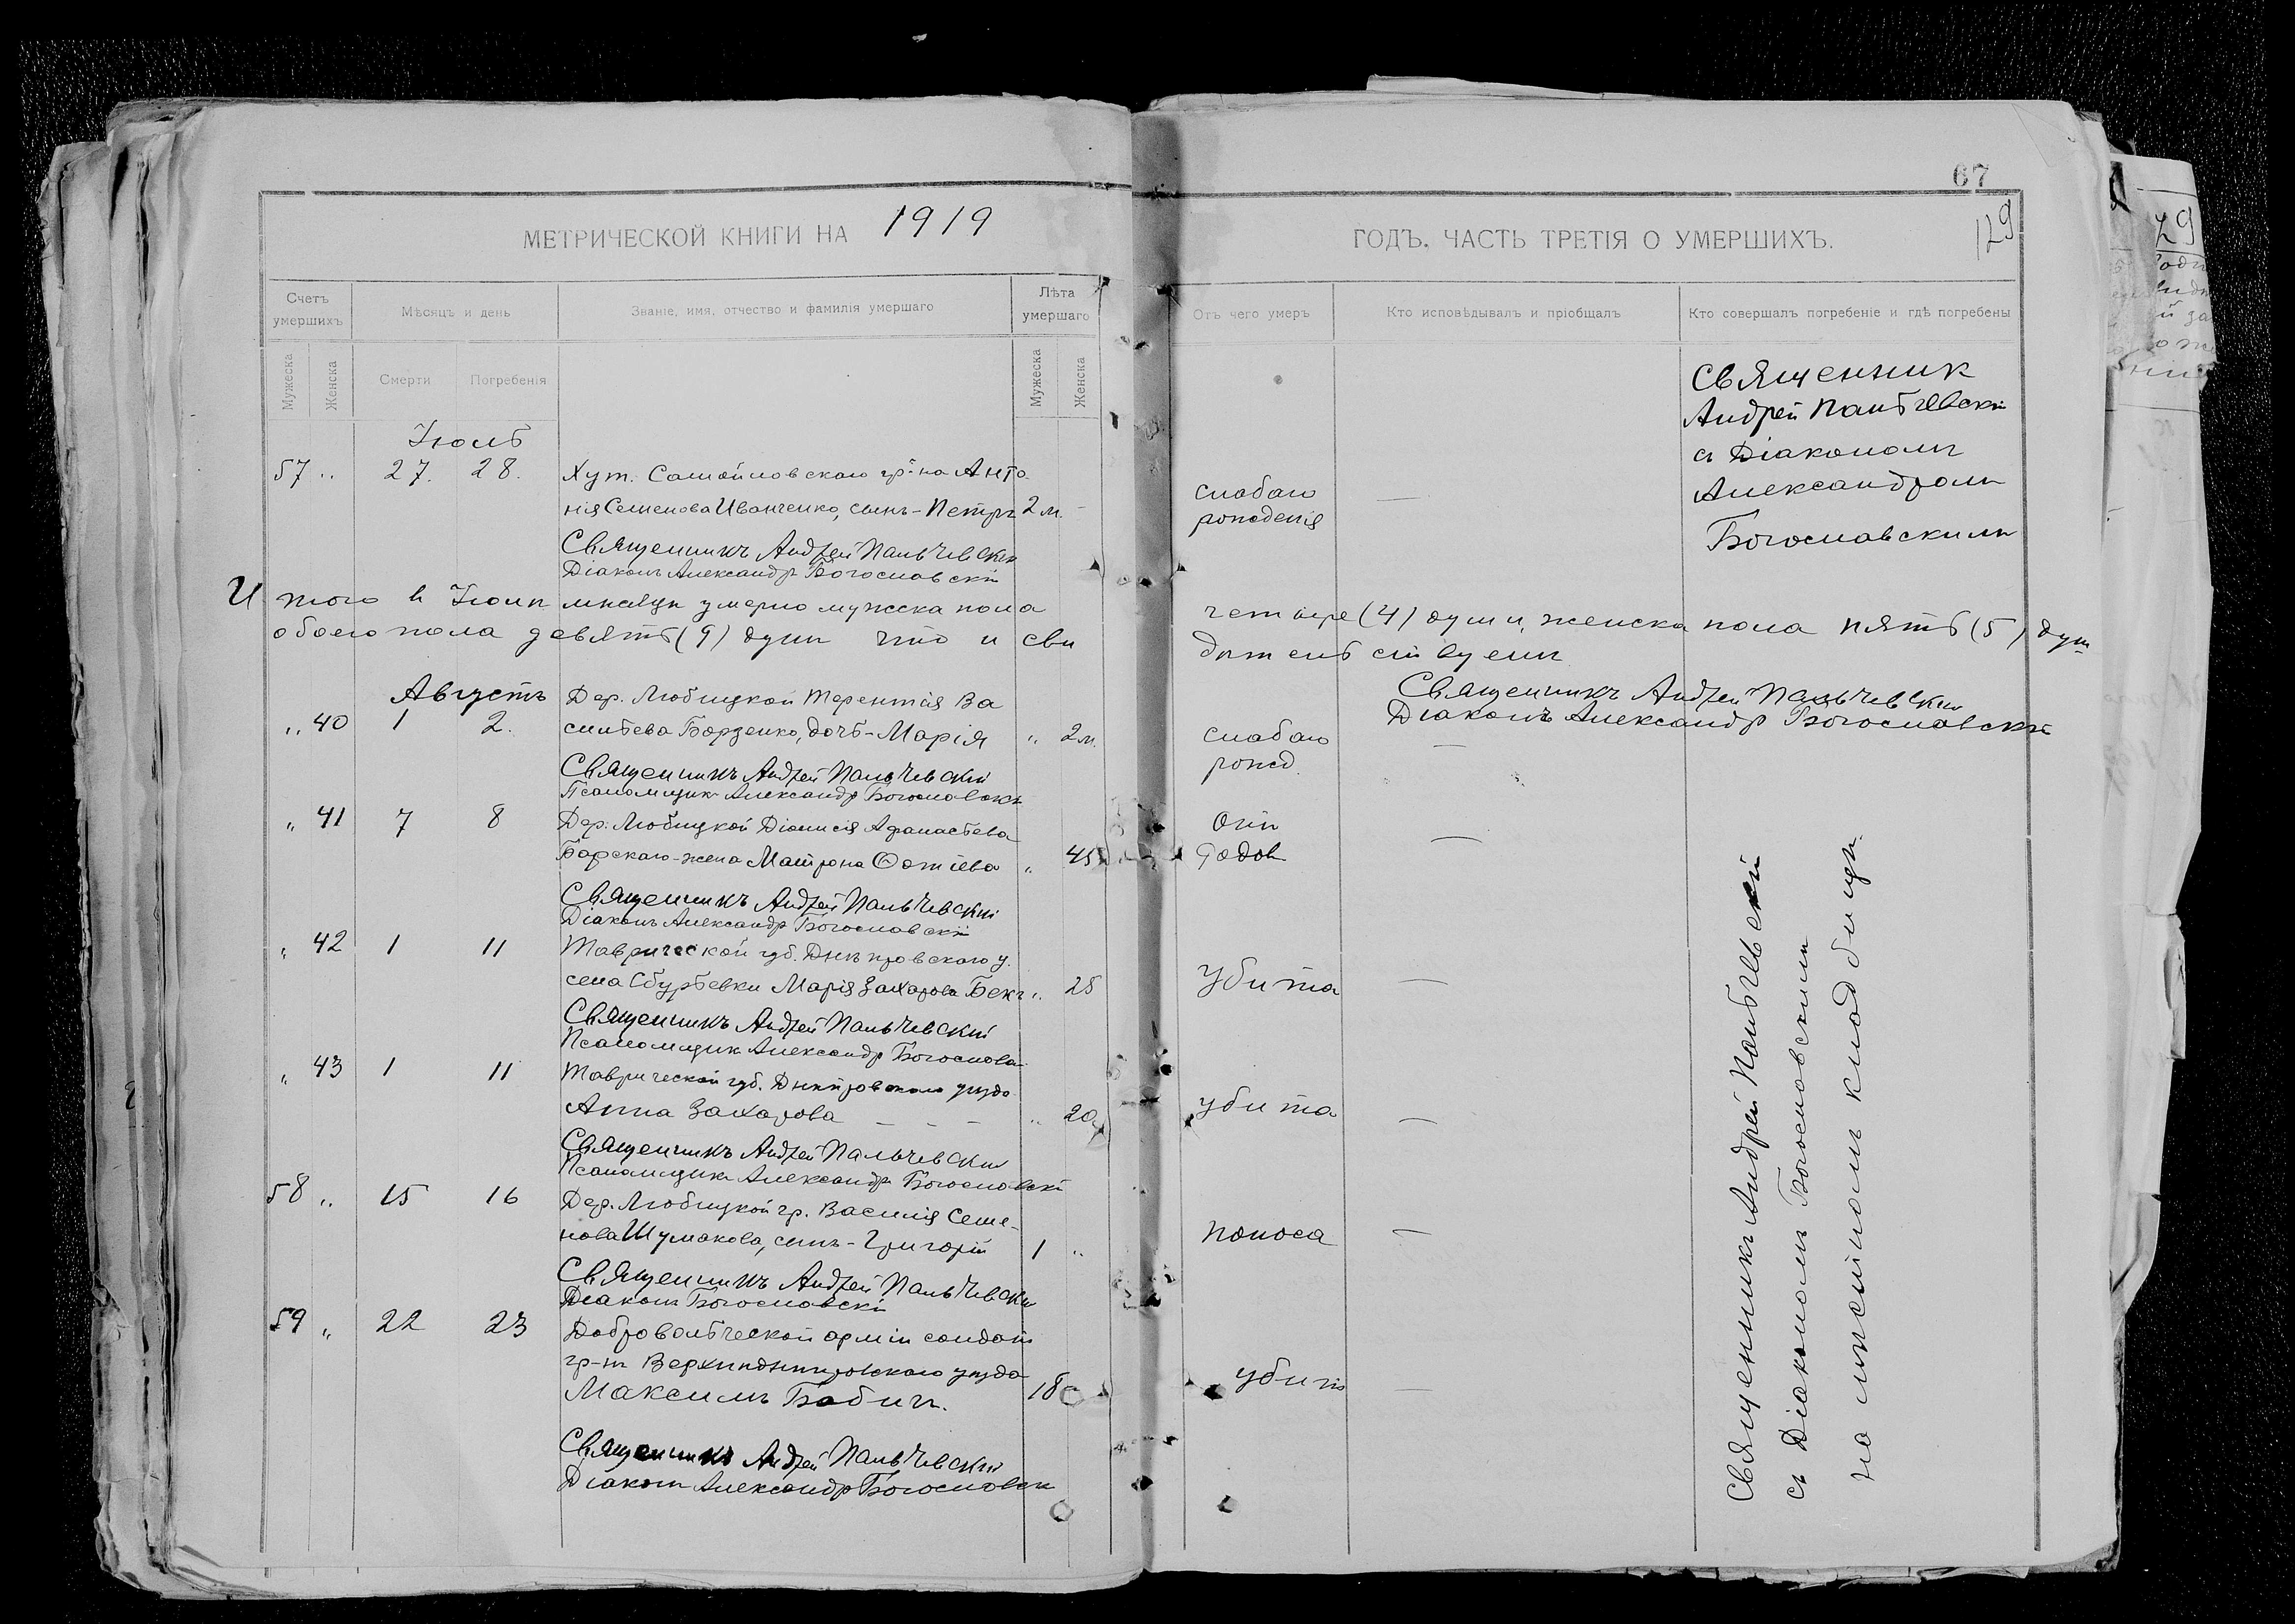 67
129
МЕТРИЧЕСКОЙ КНИГИ НА 1919
ГОДЪ. ЧАСТЬ ТРЕТІЯ О УМЕРШИХЪ.
Счетъ умершихъ
Мѣсяцъ и день
Званіе, имя, отчество и фамилія умершаго
Лѣта умершаго
Отъ чего умеръ
Кто исповѣдывалъ и пріобщалъ
Кто совершалъ погребеніе и гдѣ погребены
Мужеска
Женска
Смерти
Погребенія
Мужеска
Женска
Священник
Андрей Пальчевскій
съ Діакономъ
Александромъ
Богословскимъ
Іюль
57 " 27. 28. Хут. Самойловскаго гр-на Анто-
нія Семенова Иванченко, сынъ - Петръ 2 м.
слабаго
рожденія
Священникъ Андрей Пальчевскій
Діаконъ Александръ Богословскій
Итого въ Іюлѣ мѣсяцѣ умерло мужеска пола четыре (4) души, женска пола пять (5) душ
обоего пола девять (9) душъ что и сви дѣтельствуемъ
Священникъ Андрей Пальчевскій
Діаконъ Александръ Богословскій
Августъ
Дер. Любицкой Терентія Ва
" 40 1 2. сильева Борзенко, дочь - Марія " 2 м.
слабаго
рожд.
Священникъ Андрей Пальчевскій
Псаломщик Александръ Богословскій
" 41 7 8 Дер. Любицкой Діонисія Афанасьева
Барскаго - жена Матрона Фотіева " 45
Отъ
родов
Священникъ Андрей Пальчевскій
Діаконъ Александръ Богословскій
" 42 1 11 Таврической губ. Днѣпровскаго у.
села Сбурьевки Марія Захарова " 25
убита
Священникъ Андрей Пальчевскій
Псаломщик Александръ Богословс
" 43 1 11 Таврической губ. Днѣпровскаго уѣзда
Анна Захарова " 20
убита
Священникъ Андрей Пальчевскій
Псаломщик Александръ Богословскій
58 " 15 16 Дер. Любицкой гр. Василія Семе-
нова Шумакова, сынъ - Григорій 1 "
поноса
Священникъ Андрей Пальчевскій
Діаконъ Богословскій
59 " 22 23 Добровольческой арміи солдатъ
гр-нъ Верхнеднѣпровскаго уѣзда
Максимъ Бабич. 18
убитъ
Священникъ Андрей Пальчевскій
Діаконъ Александръ Богословскій
Священникъ Андрей Пальчевскій
съ Діакономъ Богословскимъ
на мѣстномъ кладбищѣ.